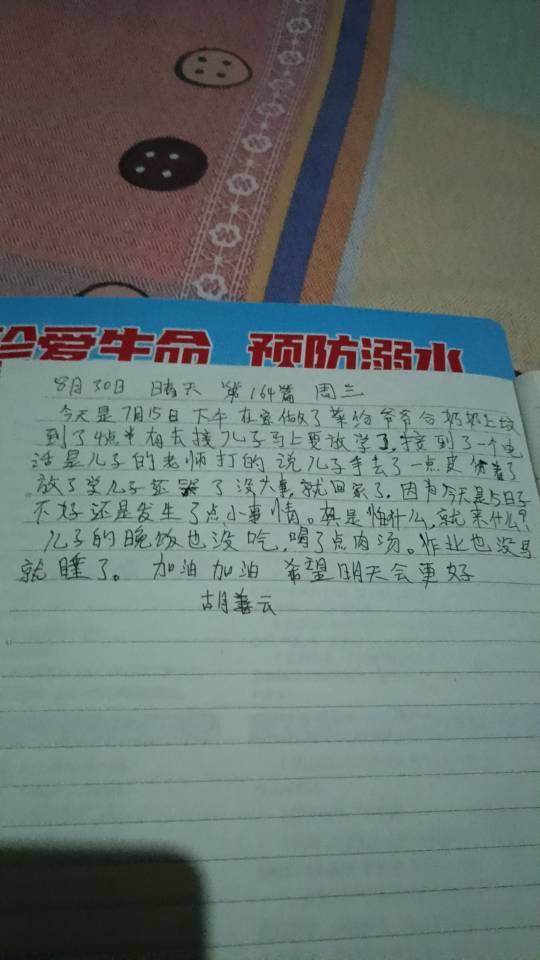 珍爱生命 预防溺水
8月30日 晴天 第164篇 周三
今天是7月15日 下午在家做了菜给爷爷合奶奶上坟
到了4点半相去接儿子马上要放学了,接到了一个电
话是儿子的老师打的说儿子手去了一点皮
放了学儿子还哭了没大事,就回家了。因为今天是与日子
不好还是发生了点小事情。真是怕什么,就来什么?
儿子的晚饭也没吃,喝了点肉汤。作业也没写
就睡了。 加油加油 希望明天会更好
胡善云